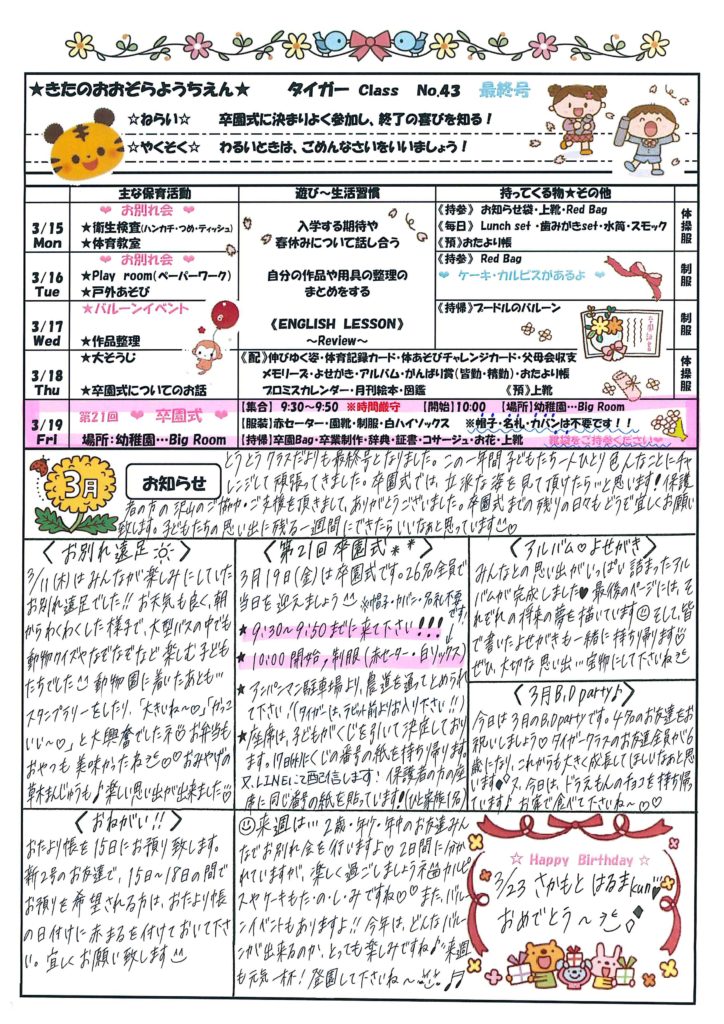 ★きたのおおぞらようちえん★ タイガー Class No.43 最終号
☆ねらい☆ 卒園式に決まりよく参加し、終了の喜びを知る！
☆やくそく☆ わるいときは、ごめんなさいをいいましょう！
主な保育活動 遊び～生活習慣 持ってくる物★その他
3/15 Mon
❤ お別れ会 ❤
★衛生検査(ハンカチ・つめ・ティッシュ)
★体育教室
入学する期待や
春休みについて話し合う
《持参》 お知らせ袋・上靴・Red Bag
《毎日》 Lunch set ・歯みがきset・水筒・スモック
《預》おたより帳
体操服
3/16 Tue
❤ お別れ会 ❤
★Play room(ペーパーワーク)
★戸外あそび
自分の作品や用具の整理の
まとめをする
《持参》 Red Bag
❤ ケーキ・カルピスがあるよ ❤
制服
3/17 Wed
★バルーンイベント
★作品整理
《ENGLISH LESSON》
～Review～
《持帰》プードルのバルーン
制服
3/18 Thu
★大そうじ
★卒園式についてのお話
《配》伸びゆく姿・体育記録カード・体あそびチャレンジカード・父母会収支
メモリーズ・よせがき・アルバム・がんばり賞(皆勤・精勤)・おたより帳
プロミスカレンダー・月刊絵本・図鑑 《預》上靴
体操服
3/19 Fri
第21回 ❤ 卒園式 ❤
場所：幼稚園…Big Room
【集合】 9:30～9:50 ※時間厳守 【開始】10:00 【場所】幼稚園…Big Room
【服装】赤セーター・園歌・制服・白ハイソックス ※帽子・名札・カバンは不要です！！
【持帰】卒園Bag・卒業制作・辞典・証書・コサージュ・お花・上靴 靴袋をご持参ください～
3月
お知らせ
とうとうクラスだよりも最終号となりました。この一年間子どもたち一人ひとり色んなことにチャ
レンジして頑張ってきました。卒園式では、立派な姿を見て頂けたら…と思います！保護
者の方の沢山のご協力・ご支援を頂きまして、ありがとうございました。卒園式までの残りの日々もどうぞ宜しくお願い
致します。子どもたちの思い出に残る一週間にできたらいいなぁと思っています♡
〈お別れ遠足〉
3/11(木)はみんなが楽しみにしていた
お別れ遠足でした!!お天気も良く、朝
からわくわくした様子で、大型バスの中でも
動物クイズやなぞなぞなど楽しむ子ども
たちでした 動物園に着いたあとも…
スタンプラリーをしたり、「大きいね～♡」「かっこ
いい～♡」と大興奮でした お弁当も
おやつも美味しかったね♡♡おみやげの
草木まんじゅうも♪楽しい思い出が出来ました♡
〈第21回卒園式**〉
3月19日(金)は卒園式です。26名全員で
当日を迎えましょう ※帽子・カバン・名札不要です！
★9:30～9:50までに来て下さい!!!
★10:00開始，制服(赤セーター・白ソックス)
★アンパンマン駐車場より、農道を通ってとめられ
て下さい。(タイガーは、ラビット前よりお入り下さい!!)
★座席は、子どもがくじを引いて決定しており
ます。17日(水)にくじの番号の紙を持ち帰ります。
又、LINEにて配信します！保護者の方の座
席に同じ番号の紙を貼っています！
〈アルバム♡よせがき〉
みんなとの思い出がいっぱい詰まったアル
バムが完成しました♥最後のページには、そ
れぞれの将来の夢を描いています そして皆
で書いたよせがきも一緒に持ち帰ります
ぜひ、大切な思い出…宝物にして下さいね
〈3月B,D party♪〉
今日は3月のB,D partyです。4名のお友達をお
祝いしましょう♡タイガークラスのお友達全員が6
歳になり、これからも大きく成長してほしいなぁと思い
ます 又、今日は、ドラえもんのチョコを持ち帰っ
ています♪お家で食べて下さいね～♡♡
〈おねがい!!〉
おたより帳を15日にお預り致します。
新2号のお友達で、15日～18日の間で
お預りを希望される方は、おたより帳
の日付けに赤まるを付けておいて下さ
い。宜しくお願い致します
来週は… 2歳・年少・年中のお友達みん
なでお別れ会を行いますよ♡2日間に分か
れていますが、楽しく過ごしましょう カルピ
スやケーキもた・の・し・みですね♡♡また、バルー
ンイベントもありますよ!!今年は、どんなバルー
ンが出来るのか、とっても楽しみですね♪来週
も元気一杯！登園して下さいね～
☆ Happy Birthday ☆
3/23 さかもと はるまkun
おめでとう～